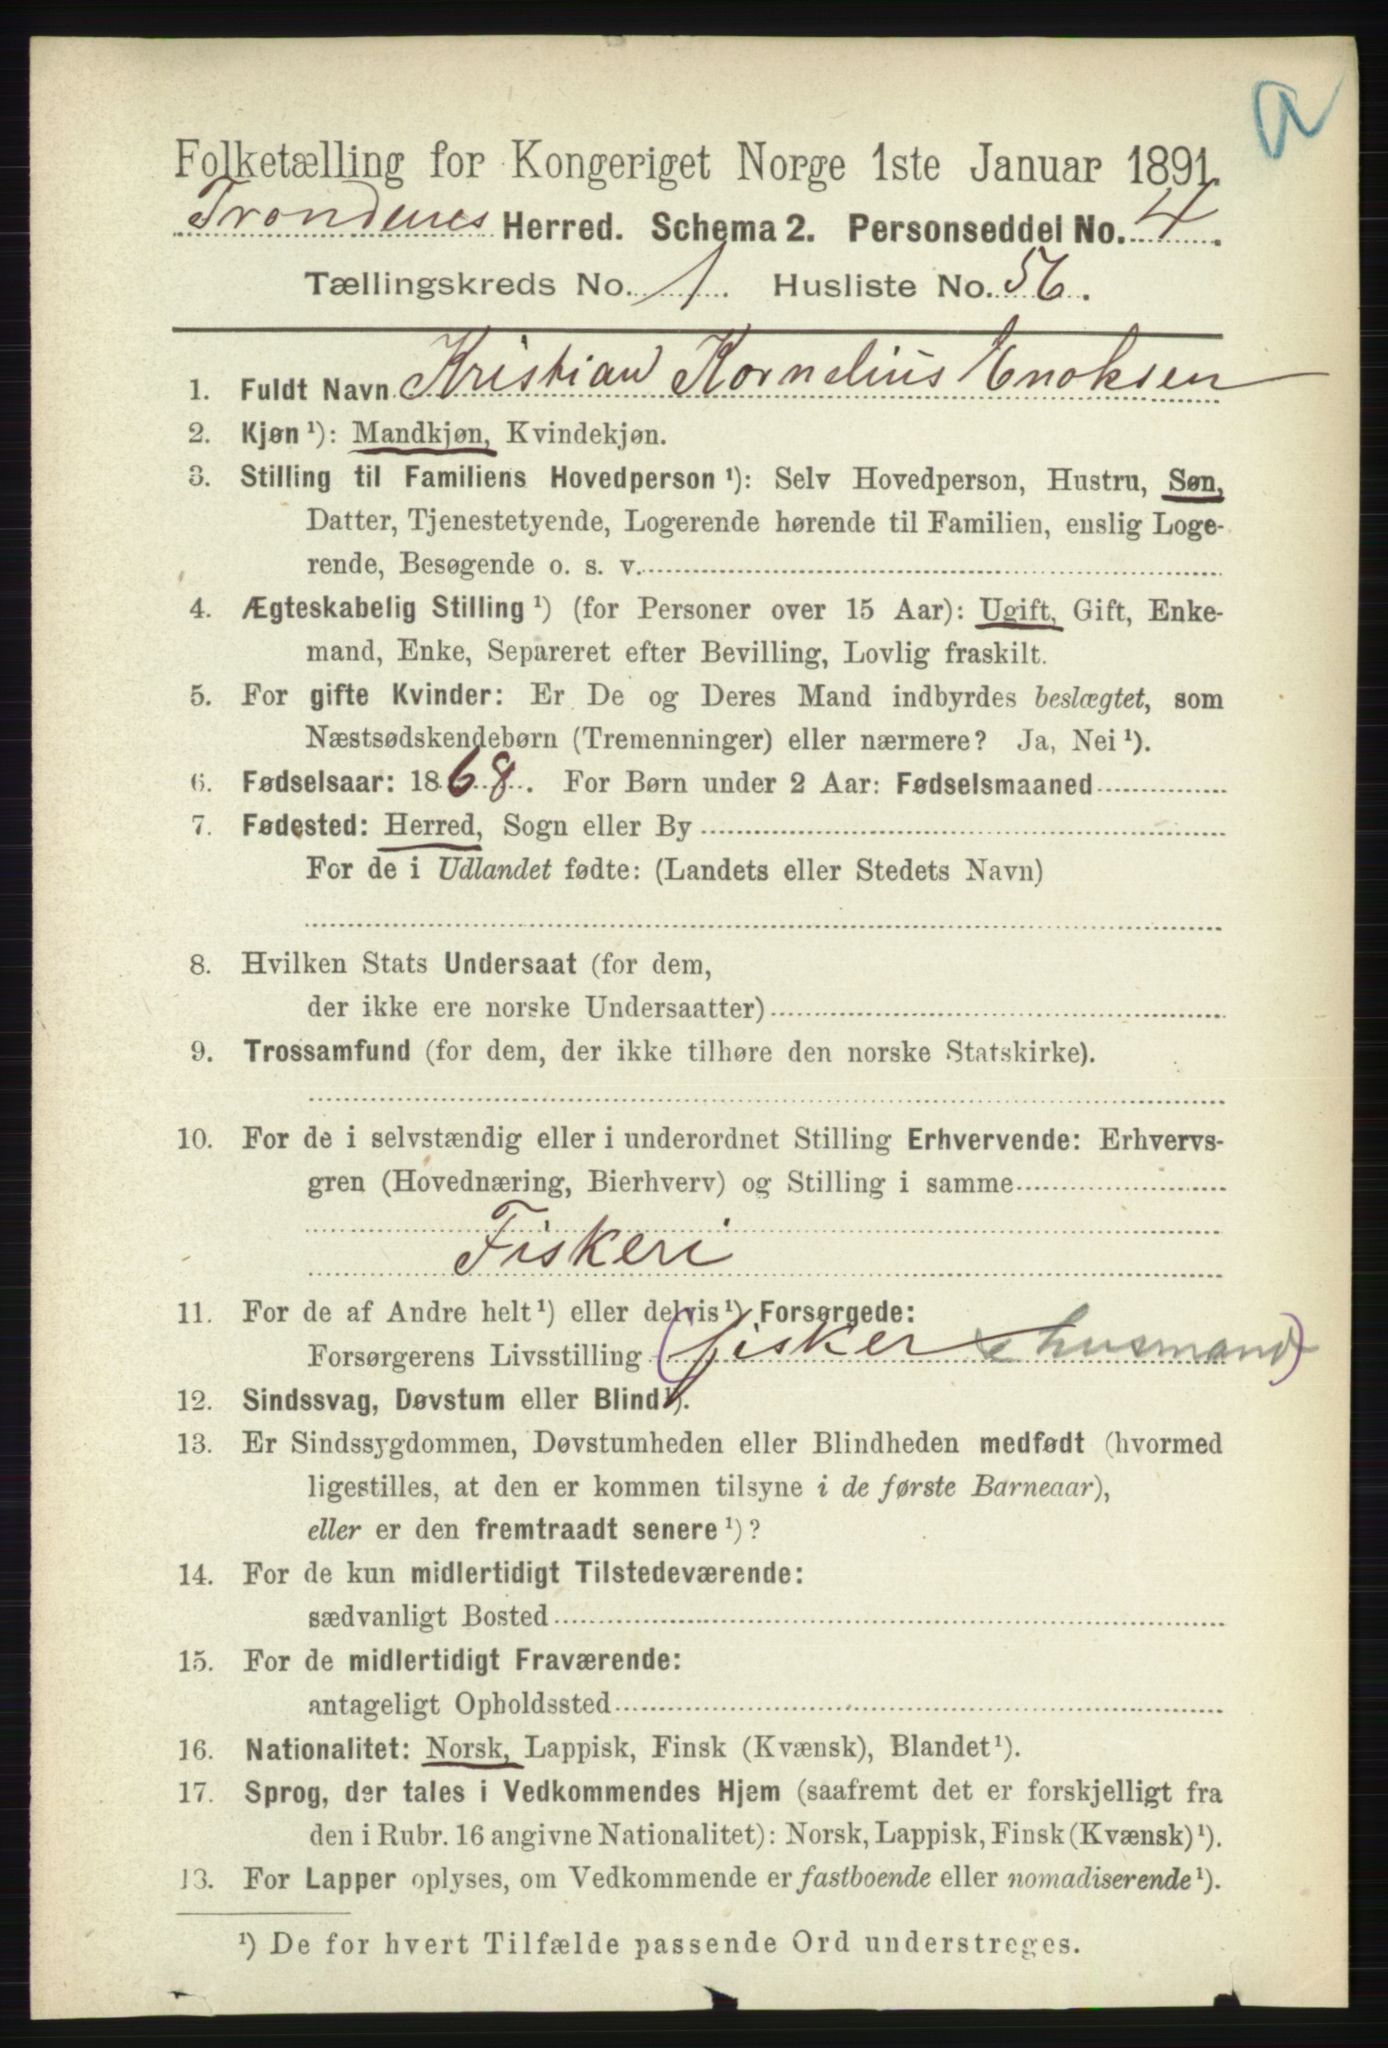 a
Folketælling for Kongeriget Norge 1ste Januar 1891.
Trondenes Herred. Schema 2. Personseddel No. 4.
Tællingskreds No. 1. Husliste No. 56.
1. Fuldt Navn Kristian Kornelius Enoksen
2. Kjøn ¹): Mandkjøn, Kvindekjøn.
3. Stilling til Familiens Hovedperson ¹): Selv Hovedperson, Hustru, Søn,
Datter, Tjenestetyende, Logerende hørende til Familien, enslig Loge-
rende, Besøgende o. s. v.
4. Ægteskabelig Stilling ¹) (for Personer over 15 Aar): Ugift, Gift, Enke-
mand, Enke, Separeret efter Bevilling, Lovlig fraskilt.
5. For gifte Kvinder: Er De og Deres Mand indbyrdes beslægtet, som
Næstsødskendebørn (Tremenninger) eller nærmere? Ja, Nei ¹).
6. Fødselsaar: 1868. For Børn under 2 Aar: Fødselsmaaned
7. Fødested: Herred, Sogn eller By
For de i Udlandet fødte: (Landets eller Stedets Navn)
8. Hvilken Stats Undersaat (for dem,
der ikke ere norske Undersaatter)
9. Trossamfund (for dem, der ikke tilhøre den norske Statskirke).
10. For de i selvstændig eller i underordnet Stilling Erhvervende: Erhvervs-
gren (Hovednæring, Bierhverv) og Stilling i samme
Fiskeri
11. For de af Andre helt ¹) eller delvis ¹) Forsørgede:
Forsørgerens Livsstilling (fisker & husmand)
12. Sindssvag, Døvstum eller Blind ¹).
13. Er Sindssygdommen, Døvstumheden eller Blindheden medfødt (hvormed
ligestilles, at den er kommen tilsyne i de første Barneaar),
eller er den fremtraadt senere ¹)?
14. For de kun midlertidigt Tilstedeværende:
sædvanligt Bosted
15. For de midlertidigt Fraværende:
antageligt Opholdssted
16. Nationalitet: Norsk, Lappisk, Finsk (Kvænsk), Blandet ¹).
17. Sprog, der tales i Vedkommendes Hjem (saafremt det er forskjelligt fra
den i Rubr. 16 angivne Nationalitet): Norsk, Lappisk, Finsk (Kvænsk) ¹).
13. For Lapper oplyses, om Vedkommende er fastboende eller nomadiserende ¹).
¹) De for hvert Tilfælde passende Ord understreges.